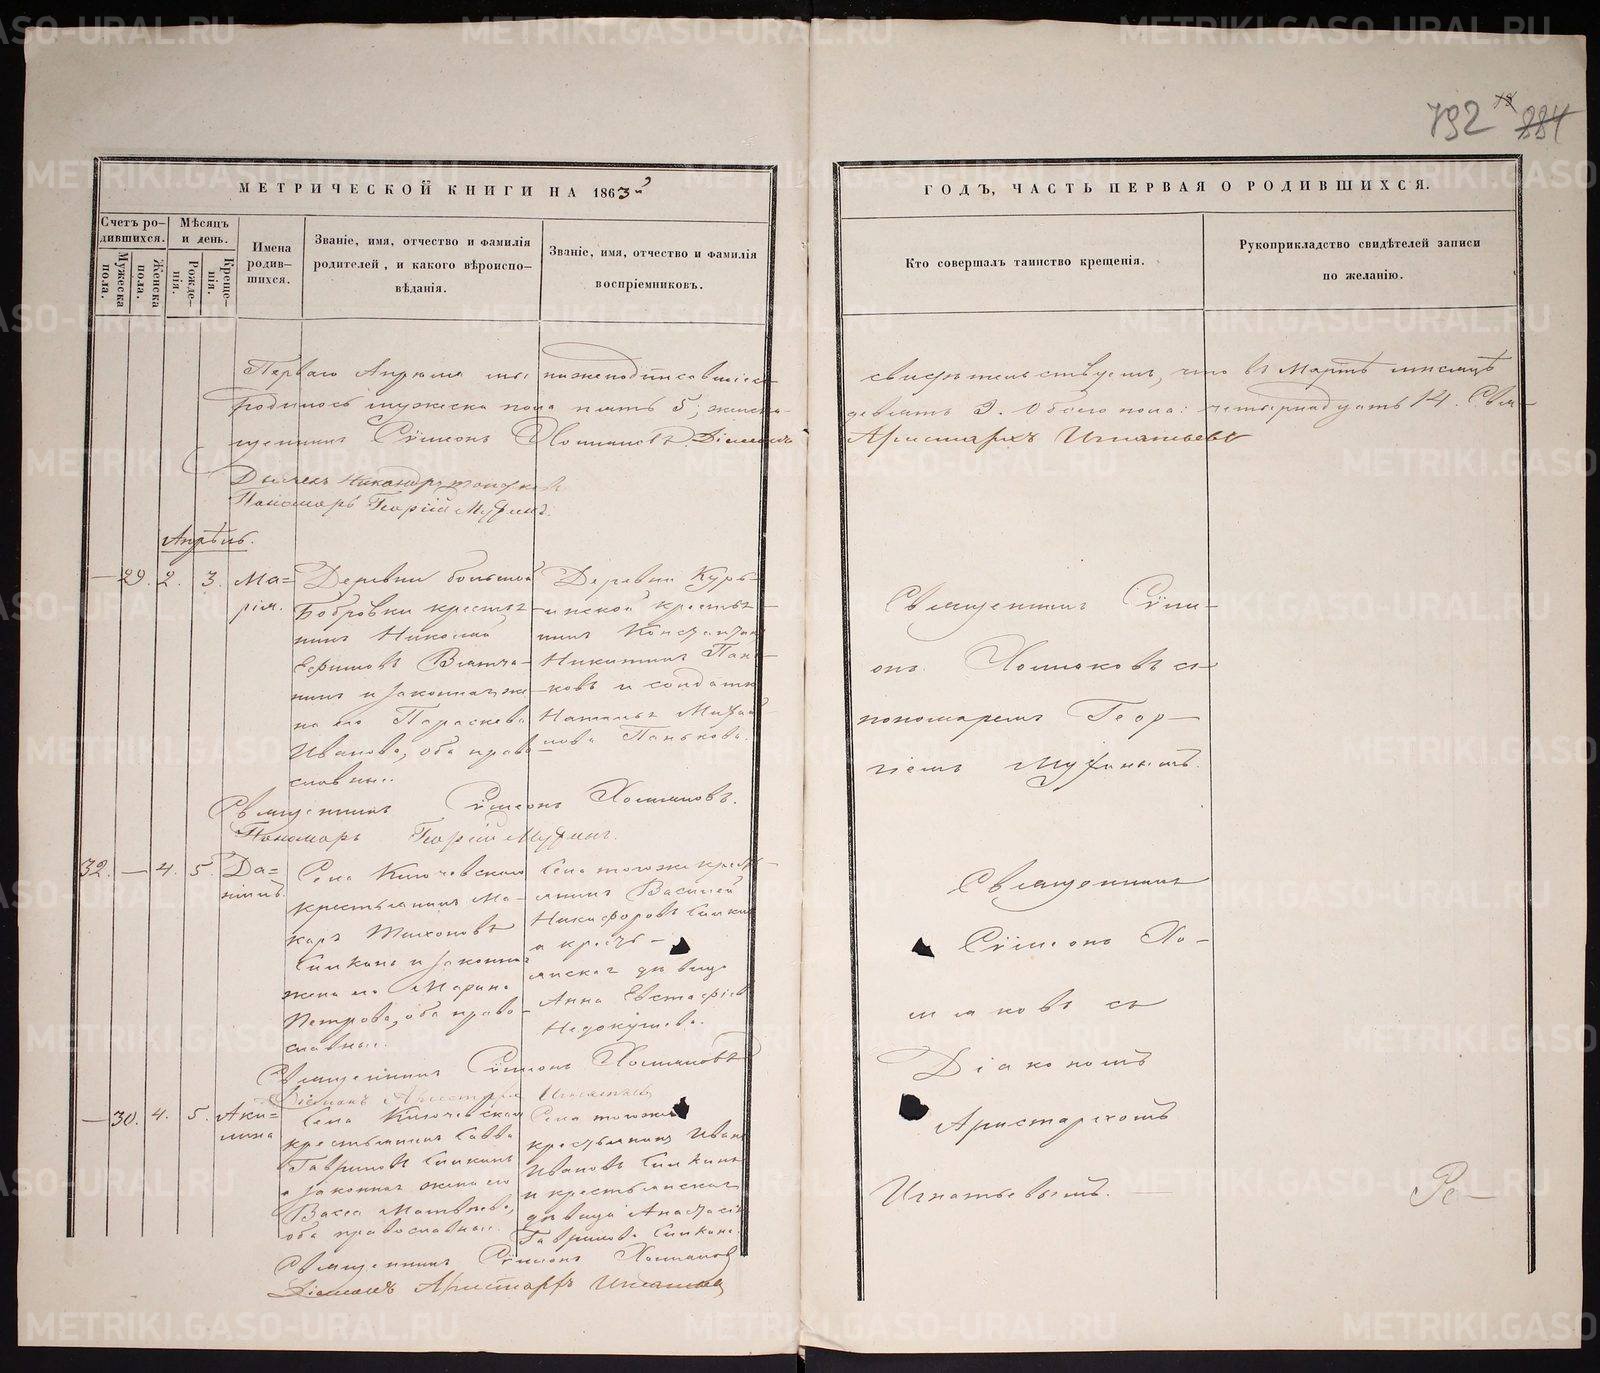 792 884
МЕТРИЧЕСКОЙ КНИГИ НА 1863й
ГОДЪ, ЧАСТЬ ПЕРВАЯ О РОДИВШИХСЯ.
Счетъ ро-
дившихся.
Мужеска
пола.
Женска
пола.
Мѣсяцъ
и день.
Рожде-
нія.
Креще-
нія.
Имена
родив-
шихся.
Званіе, имя, отчество и фамилія
родителей, и какого вѣроиспо-
вѣданія.
Званіе, имя, отчество и фамилія
воспріемниковъ.
Кто совершалъ таинство крещенія.
Рукоприкладство свидѣтелей записи
по желанію.
Перваго Апрѣля мы нижеподписавшіеся
свидѣтельствуемъ, что въ Мартѣ мѣсяцѣ
родилось мужеска пола пять 5, женска-
девять 9. Обоего пола: четырнадцать 14. Свя-
щенникъ Сѵмеонъ Хомяковъ. Діаконъ
Аристархъ Игнатьевъ
Дьячекъ Никандръ
Пономарь Георгій Мухинъ.
Апрѣль.
— 29. 2. 3. Ма=
рія.
Деревни большой
Бобровки крестья-
нинъ Николай
Ефимовъ Вятча-
нинъ и законная же-
на его Параскева
Иванова, оба право-
славные.
Деревни Курь-
инской крестья-
нинъ Константинъ
Никитинъ Пань-
ковъ и солдатка
Наталья Михай-
лова Панькова.
Священникъ Сѵме-
онъ Хомяковъ съ
пономаремъ Геор-
гіемъ Мухинымъ.
Священникъ Сѵмеонъ Хомяковъ.
Пономарь Георгій Мухинъ.
32. — 4. 5. Да=
ніилъ.
Села Ключевскаго
крестьянинъ Ма-
каръ Тихоновъ
Симкинъ и законная
жена его Марина
Петрова, оба право-
славные.
Села тогоже кресть-
янинъ Василей
Никифоровъ Симкинъ
и кресть-
янская дѣвица
Анна Евстафіева
Недокушева.
Священникъ
Сѵмеонъ Хо-
мяковъ съ
Діакономъ
Аристархомъ
Игнатьевымъ.
Священникъ Сѵмеонъ Хомяковъ
Діаконъ Аристархъ Игнатьевъ
— 30. 4. 5. Аки=
лина
Села Ключевскаго
крестьянинъ Савва
Гавриловъ Симкинъ
и законная жена его
Васса Матвѣева,
оба православные.
Села тогоже
крестьянинъ Иванъ
Ивановъ Симкинъ
и крестьянская
дѣвица Анастасія
Гаврилова Симкина
Ре—
Священникъ Сѵмеонъ Хомяковъ
Діаконъ Аристархъ Игнатьевъ